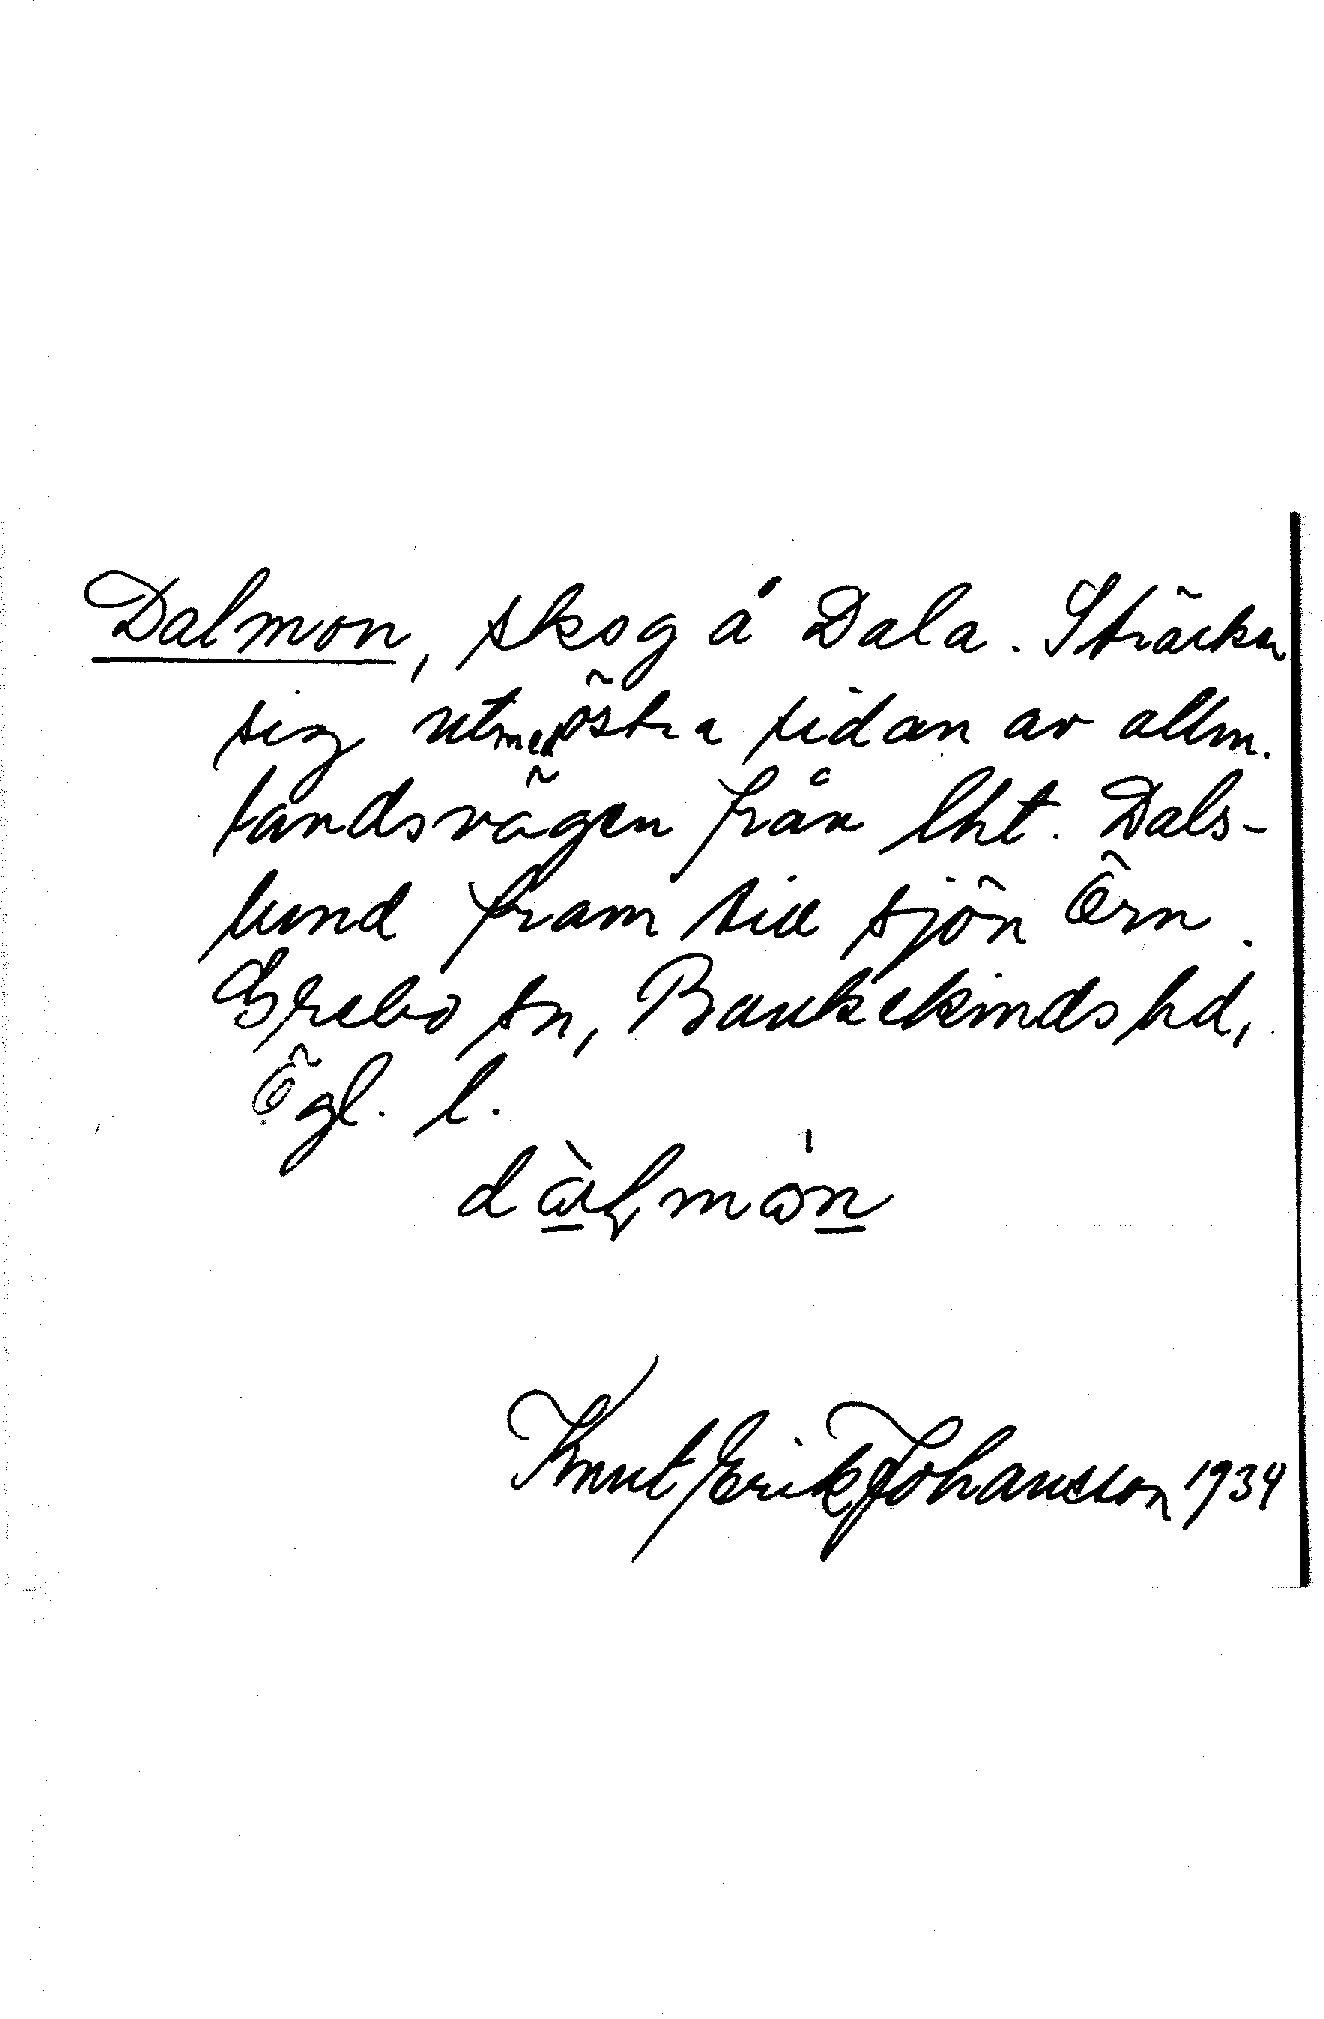 Dalmon, skog å Dala. Sträcker
sig utmed östra sidan av allm.
landsvägen från lht. Dals-
lund fram till sjön Örn.
Grebo sn, Bankekinds hd,
Ögl. l.
Knut Erik Johansson 1934